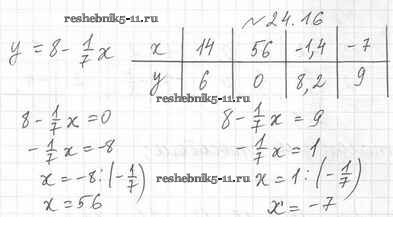 reshebnik5-11.ru
№24.16
y = 8 - 1/7 x
x | 14 | 56 | -1,4 | -7
y | 6 | 0 | 8,2 | 9
reshebnik5-11.ru
8 - 1/7 x = 0
8 - 1/7 x = 9
- 1/7 x = -8
- 1/7 x = 1
x = -8 : (- 1/7)
reshebnik5-11.ru
x = 1 : (- 1/7)
x = 56
x = -7